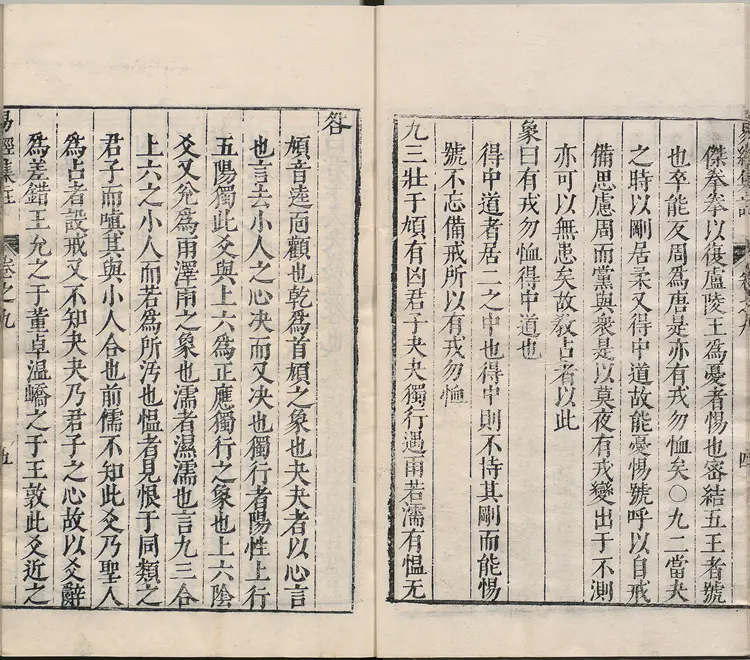 傑拳拳以復廬陵王為憂者惕也密結五王者號
也卒能反周為唐是亦有戎勿恤矣〇九二當夬
之時以剛居柔又得中道故能憂惕號呼以自戒
備思慮周而黨與衆是以莫夜有戎變出于不測
亦可以無患矣故教占者以此
象曰有戎勿恤得中道也
得中道者居二之中也得中則不恃其剛而能惕
號不忘備戒所以有戎勿恤
九三壯于頄有凶君子夬夬獨行遇雨若濡有慍无
咎
頄音逵面顴也乾為首頄之象也夬夬者以心言
也言去小人之心決而又決也獨行者陽性上行
五陽獨此爻與上六為正應獨行之象也上六陰
爻又兌為雨澤雨之象也濡者濕濡也言九三合
上六之小人而若為所汚也慍者見恨于同類之
君子而嗔其與小人合也前儒不知此爻乃聖人
為占者設戒又不知夬夬乃君子之心故以爻辭
為差錯王允之于董卓溫嶠之于王敦此爻近之
易經集註 卷之九 五